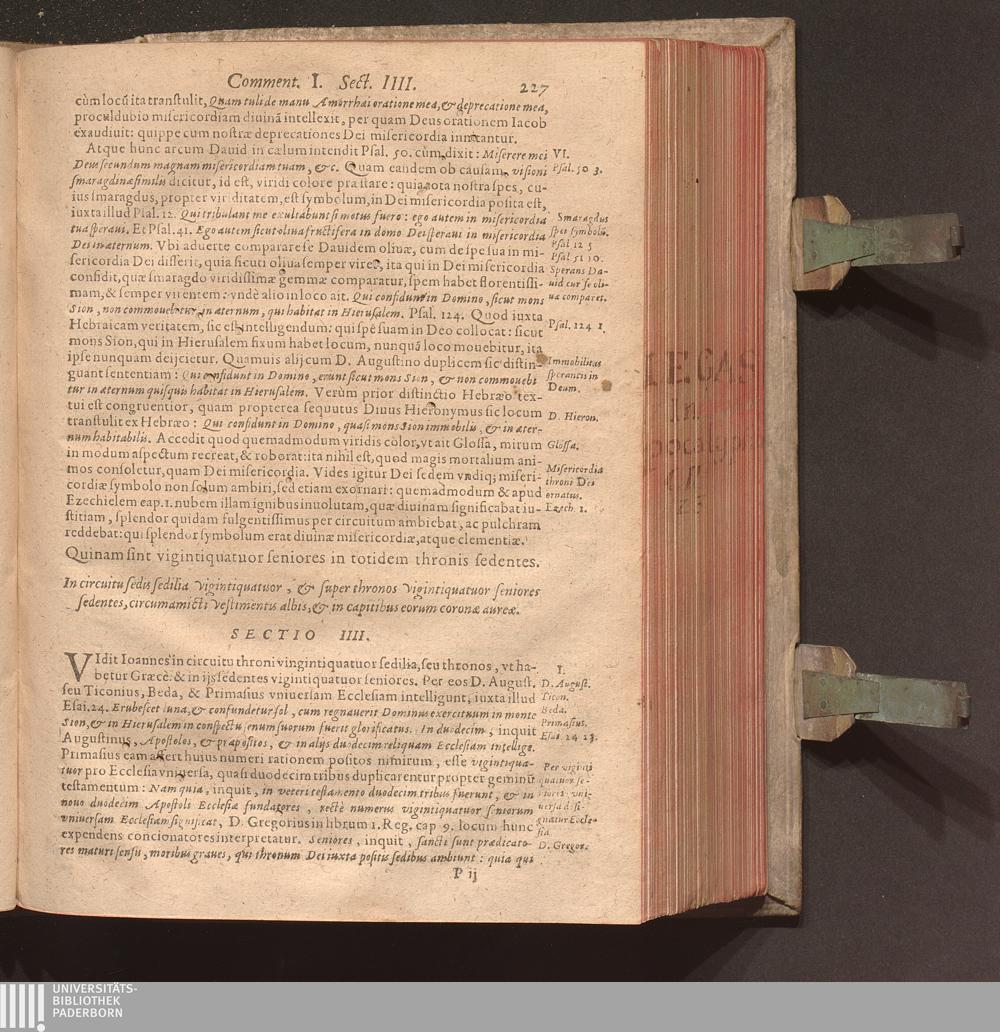 Comment. I. Sect. IIII. 227
cùm locũ ita transtulit, Quam tuli de manu Amorrhæi oratione mea, & deprecatione mea,
proculdubio misericordiam diuinã intellexit, per quam Deus orationem Iacob
exaudiuit: quippe cum nostræ deprecationes Dei misericordia innitantur.
Atque hunc arcum Dauid in cælum intendit Psal. 50. cùm dixit: Miserere mei
Deus secundum magnam misericordiam tuam, &c. Quam eandem ob causam, visioni
smaragdinæ similis dicitur, id est, viridi colore præstare: quia tota nostra spes, cu-
ius smaragdus, propter viriditatem, est symbolum, in Dei misericordia posita est,
iuxta illud Psal. 12. Qui tribulant me exultabunt si motus fuero: ego autem in misericordia
tua speraui. Et Psal. 41. Ego autem sicut oliua fructifera in domo Dei speraui in misericordia
Dei in æternum. Vbi aduerte comparare se Dauidem oliuæ, cum de spe sua in mi-
sericordia Dei disserit, quia sicuti oliua semper viret, ita qui in Dei misericordia
confidit, quæ smaragdo viridissimæ gemmæ comparatur, spem habet florentissi-
mam, & semper virentem: vndè alio in loco ait. Qui confidunt in Domino, sicut mons
Sion, non commouebitur in æternum, qui habitat in Hierusalem. Psal. 124. Quod iuxta
Hebraicam veritatem, sic est intelligendum: qui spẽ suam in Deo collocat: sicut
mons Sion, qui in Hierusalem fixum habet locum, nunquã loco mouebitur, ita
ipse nunquam deijcietur. Quamuis alij cum D. Augustino duplicem sic distin-
guant sententiam: Qui confidunt in Domino, erunt sicut mons Sion, & non commouebi
tur in æternum quisquis habitat in Hierusalem. Verum prior distinctio Hebræo tex-
tui est congruentior, quam propterea sequutus Diuus Hieronymus sic locum
transtulit ex Hebræo: Qui confidunt in Domino, quasi mons Sion immobilis, & in æter-
num habitabilis. Accedit quod quemadmodum viridis color, vt ait Glossa, mirum
in modum aspectum recreat, & roborat: ita nihil est, quod magis mortalium ani-
mos consoletur, quam Dei misericordia. Vides igitur Dei sedem vndiq; miseri-
cordiæ symbolo non solum ambiri, sed etiam exornari: quemadmodum & apud
Ezechielem cap. 1. nubem illam ignibus inuolutam, quæ diuinam significabat iu-
stitiam, splendor quidam fulgentissimus per circuitum ambiebat, ac pulchram
reddebat: qui splendor symbolum erat diuinæ misericordiæ, atque clementiæ.
VI.
Psal. 50 3.
Smaragdus
spei symbolũ.
Psal 12 5
Psal 51 10.
Sperans Da-
uid cur se oli-
uæ comparet.
Psal. 124 1.
Immobilitas
sperantis in
Deum.
D. Hieron.
Glossa.
Misericordia
throni Dei
ornatus.
Ezech. 1.
Quinam sint vigintiquatuor seniores in totidem thronis sedentes.
In circuitu sedis sedilia vigintiquatuor, & super thronos vigintiquatuor seniores
sedentes, circumamicti vestimentis albis, & in capitibus eorum coronæ aureæ.
SECTIO IIII.
VIdit Ioannes in circuitu throni vingintiquatuor sedilia, seu thronos, vt ha-
betur Græcè: & in ijs sedentes vigintiquatuor seniores. Per eos D. August.
seu Ticonius, Beda, & Primasius vniuersam Ecclesiam intelligunt, iuxta illud
Esai. 24. Erubescet luna, & confundetur sol, cum regnauerit Dominus exercituum in monte
Sion, & in Hierusalem in conspectu senum suorum fuerit glorificatus. In duodecim, inquit
Augustinus, Apostolos, & præpositos, & in alijs duodecim reliquam Ecclesiam intellige.
Primasius eam affert huius numeri rationem positos nimirum, esse vigintiqua-
tuor pro Ecclesia vniuersa, quasi duodecim tribus duplicarentur propter geminũ
testamentum: Nam quia, inquit, in veteri testamento duodecim tribus fuerunt, & in
nouo duodecim Apostoli Ecclesiæ fundatores, rectè numerus vigintiquatuor seniorum
vniuersam Ecclesiam significat, D. Gregorius in librum 1. Reg. cap 9. locum hunc
expendens concionatores interpretatur. Seniores, inquit, sancti sunt prædicato-
res maturi sensu, moribus graues, qui thronum Dei iuxta positis sedibus ambiunt: quia qui
P ij
I.
D. August.
Ticon.
Beda.
Primasius.
Esai. 24 23.
Per viginti
quatuor se-
niores vni-
uersa desi-
gnatur Eccle-
sia.
D. Gregor.
LEGAS
In
pocalyp
CII
UNIVERSITÄTS-
BIBLIOTHEK
PADERBORN